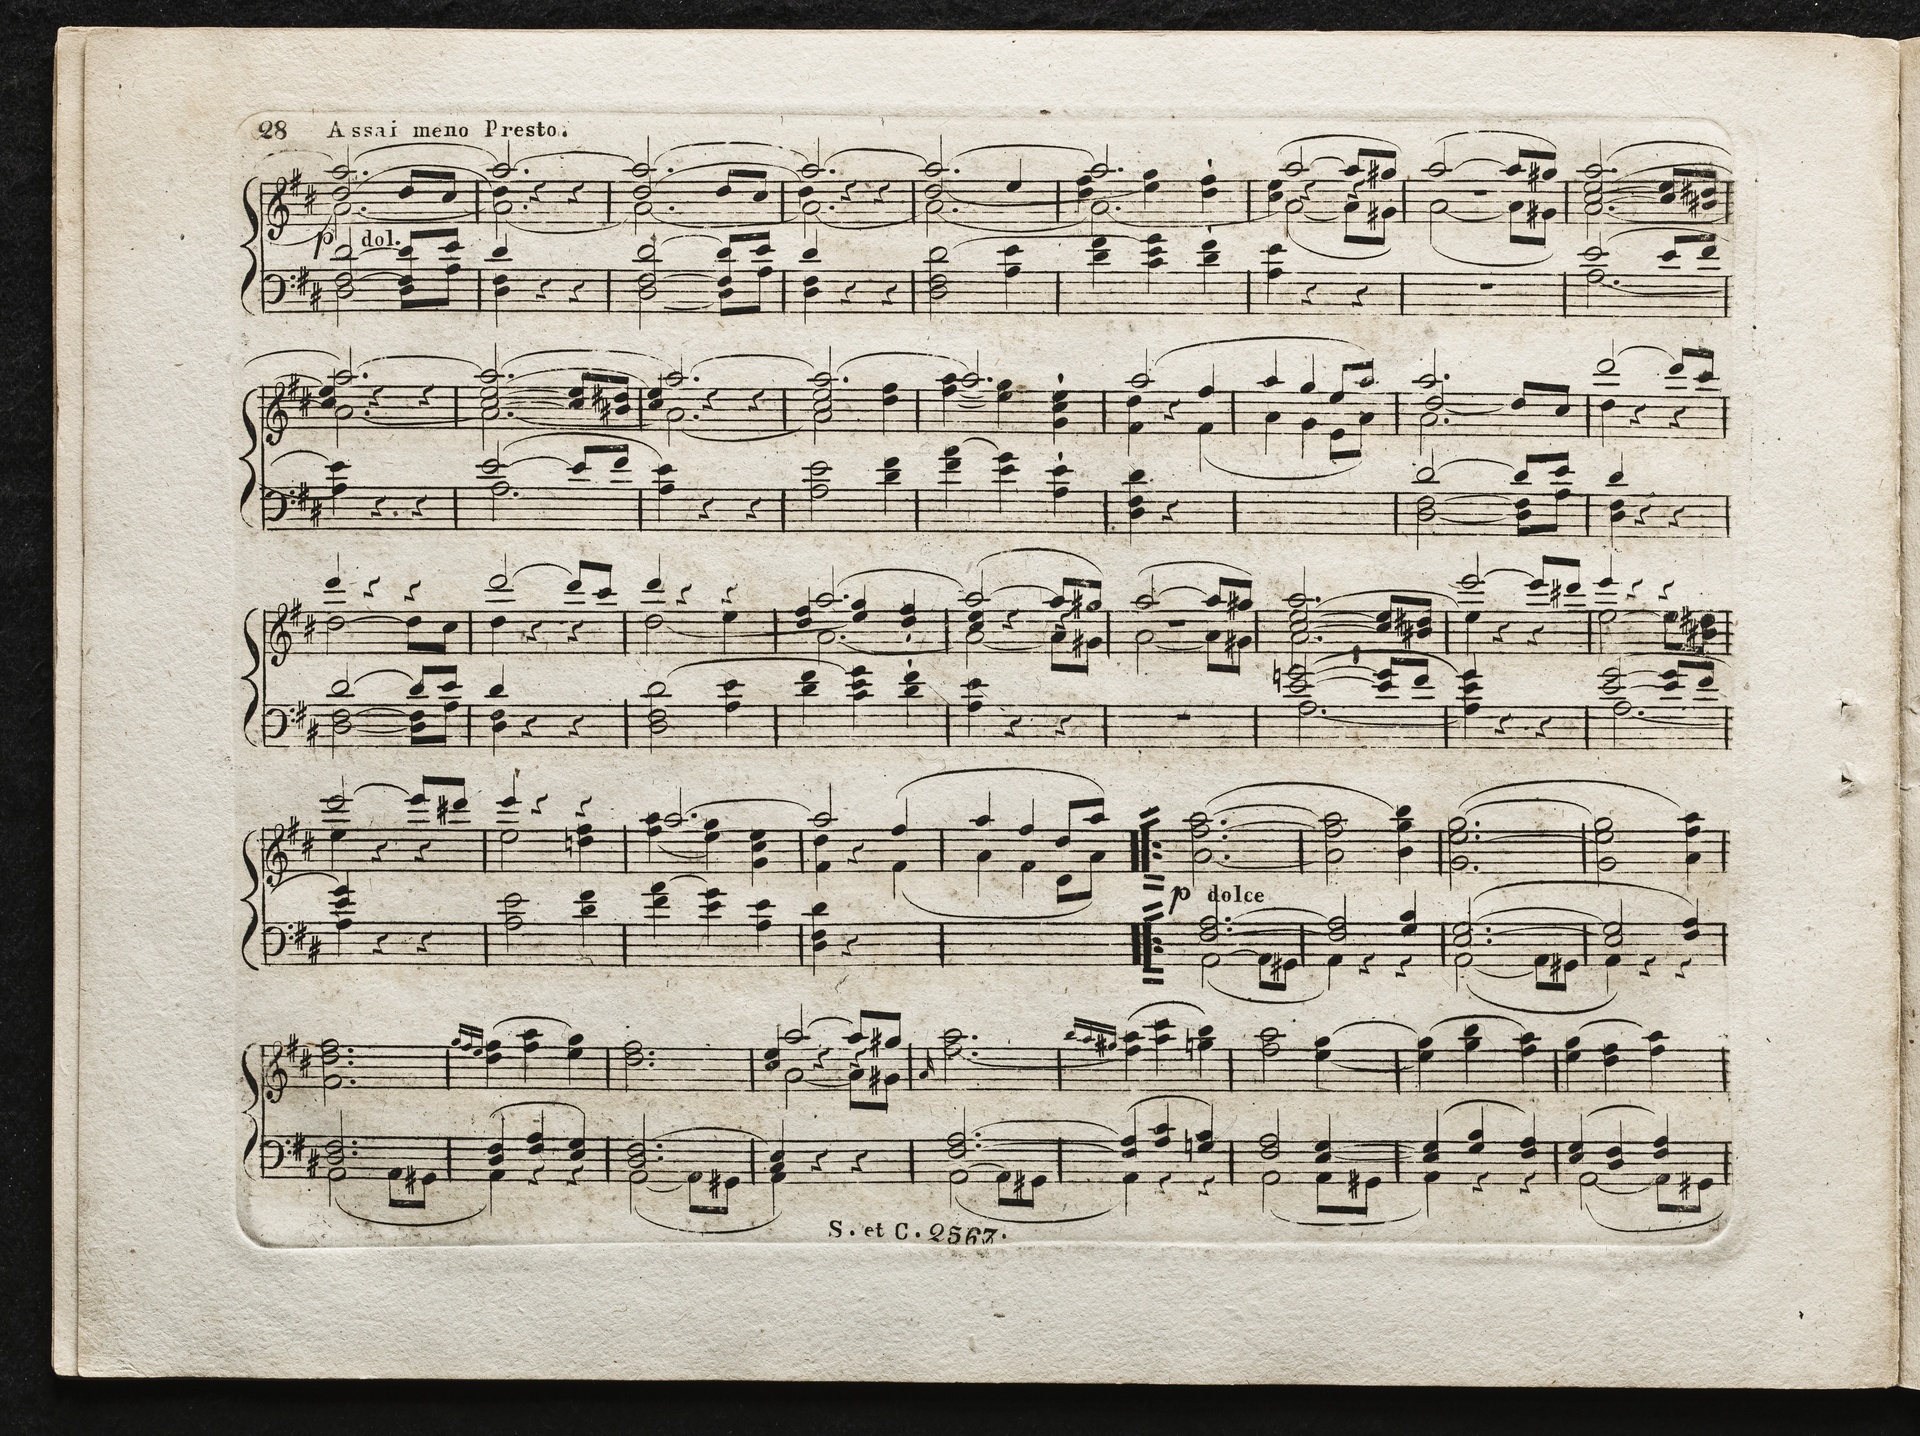 28 Assai meno Presto.
p dol.
p dolce
S. et C. 2567.